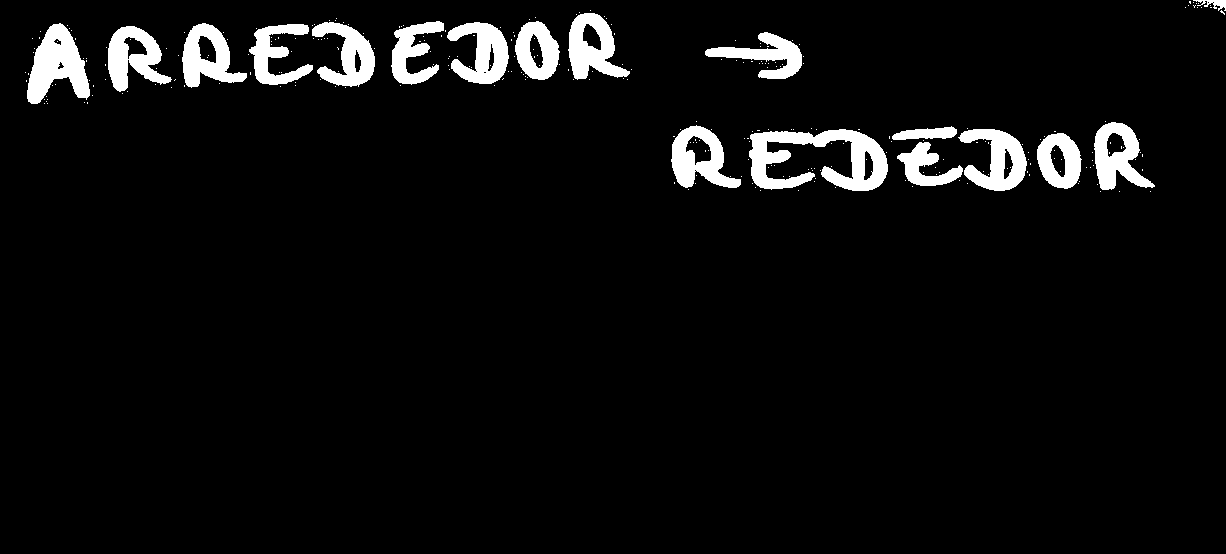 ARREDEDOR →
REDEDOR